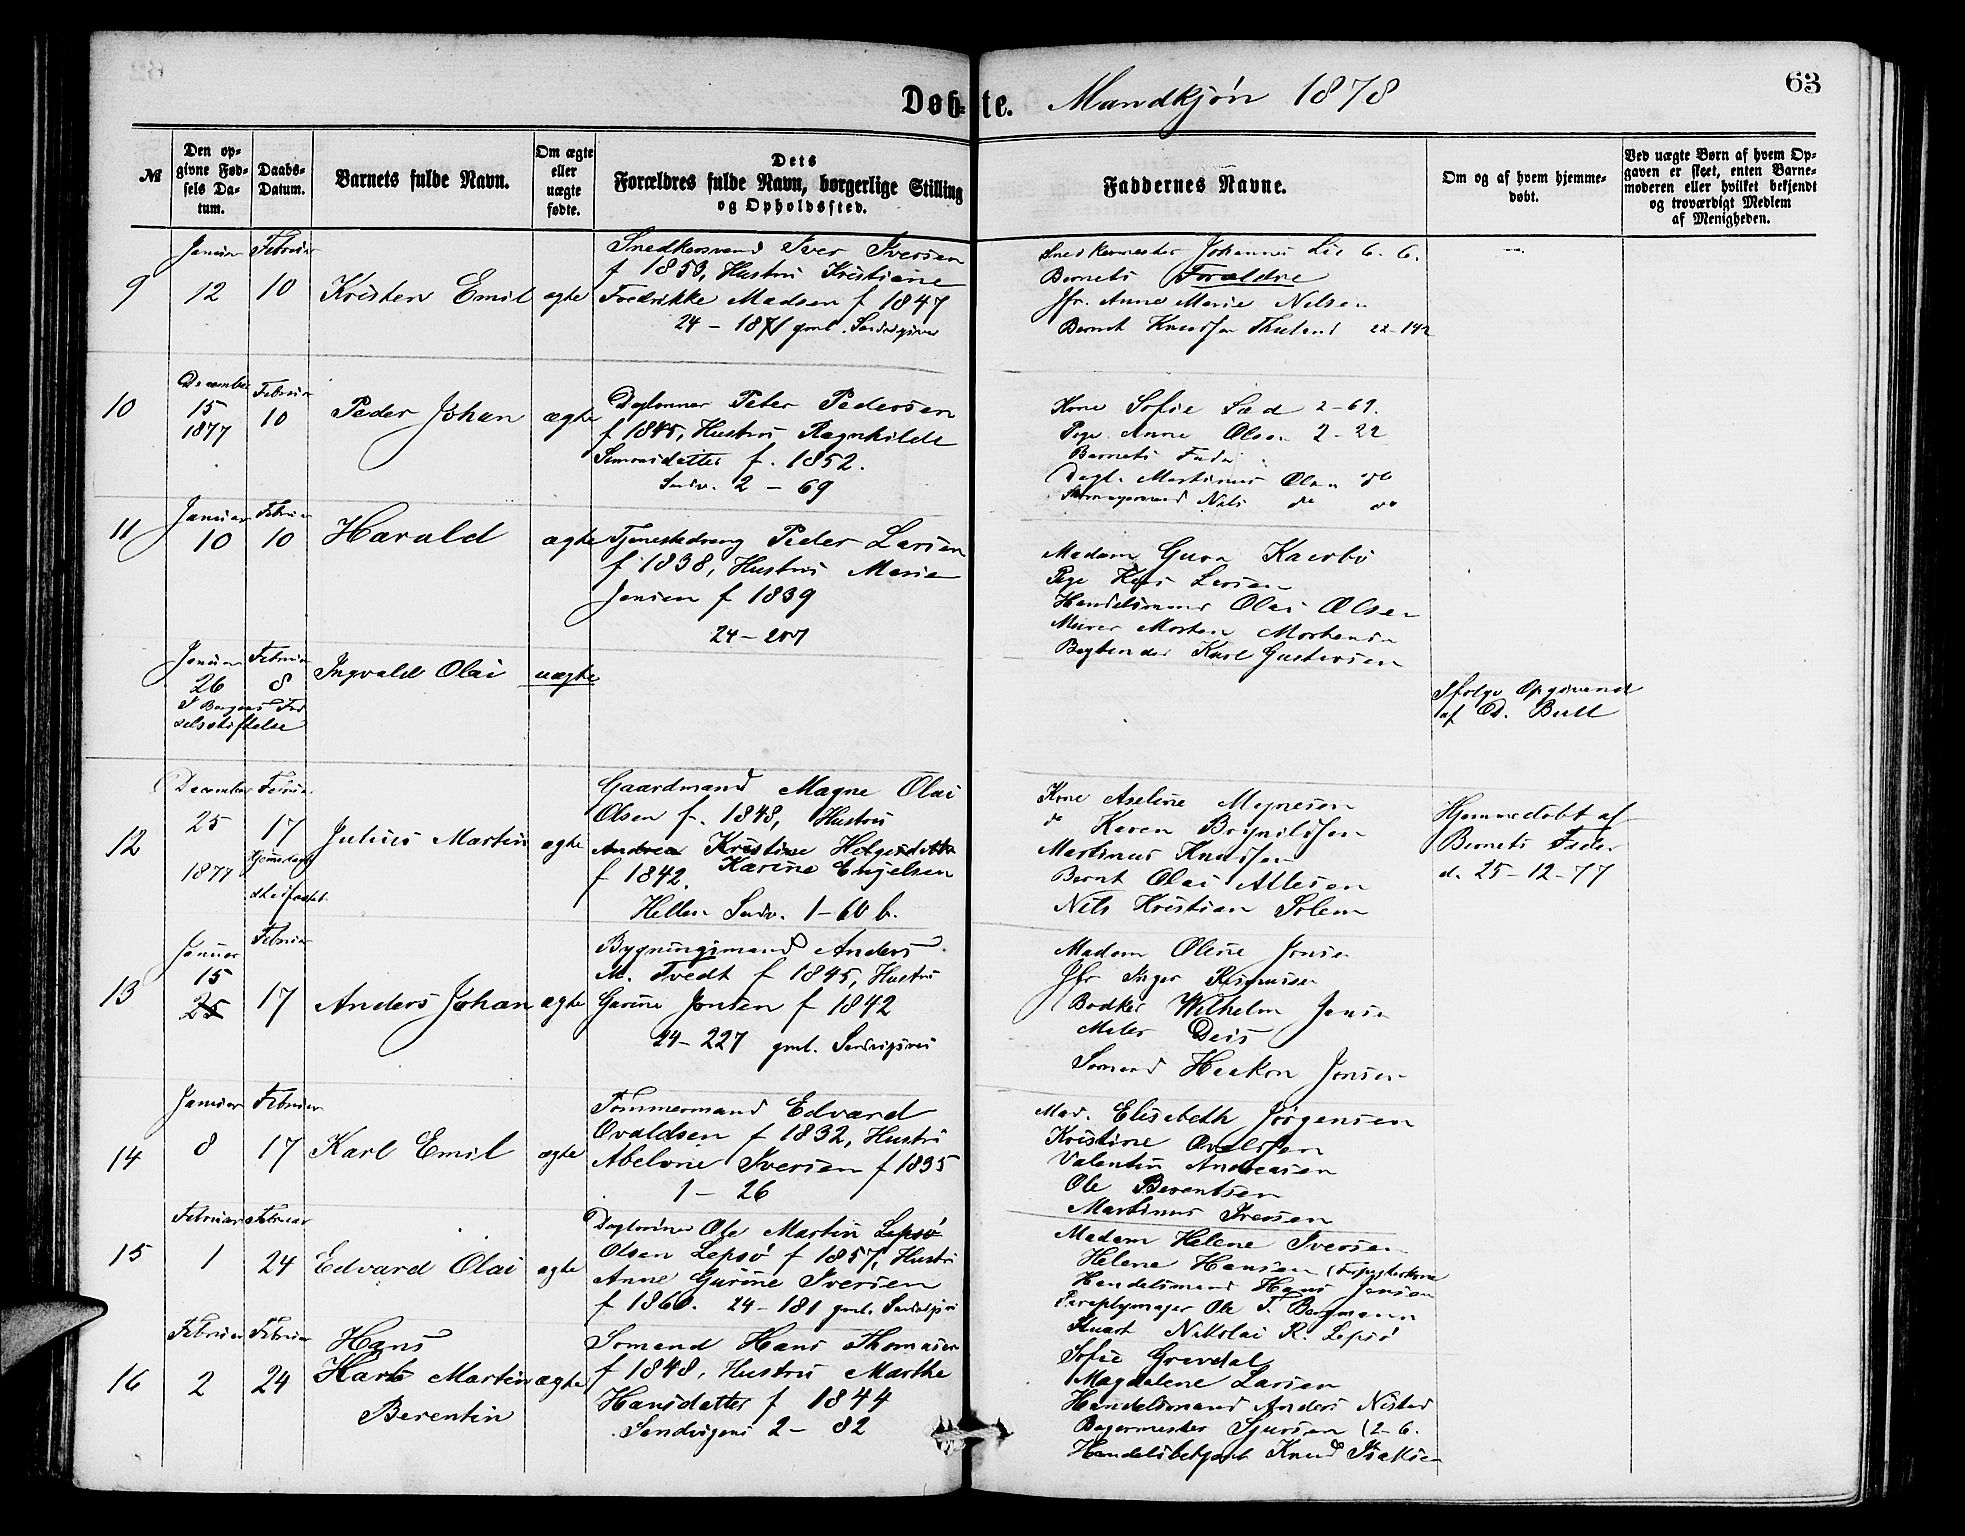 63
Døb=te. Mandkjøn 1878
№
Den op-
givne Fød-
sels Da-
tum.
Daabs-
Datum.
Barnets fulde Navn.
Om ægte
eller
uægte
fødte.
Dets
Forældres fulde Navn, borgerlige Stilling
og Opholdssted.
Faddernes Navne.
Om og af hvem hjemme-
døbt.
Ved uægte Børn af hvem Op-
gaven er skeet, enten Barne-
moderen eller hvilket bekjendt
og troværdigt Medlem
af Menigheden.
9
Januar
12
Februar
10
Kristen Emil
ægte
Snedkersvend Iver Iversen
f 1853, Hustru Kristiane
Fredrikke Madsen f 1847
24 - 1871 gml.
Snedkermester Johannes Lie 6. 6.
Barnets Forældre
Jfr. Anne Marie Nilsen
Bernt Knudsen 22-142
10
December
15
1877
Februar
10
Peder Johan
ægte
Daglønner Peter Pedersen
f 1845, Hustru Ragnhilde
Simonsdatter f. 1852.
Sandv. 2 - 69
Kone Sofie 2-69.
Pige Anne Olsen 2-22
Barnets Fader
Dagl. Martinus Olsen do
Nils do do
11
Januar
10
Februar
10
Harald
ægte
Tjenestedreng Peder Larsen
f 1838, Hustru Marie
Jensen f 1839
24-207
Madam Guro
Pige Larsen
Handelsmand Olai Olsen
Murer Morten Mortensen
Karl Gustavsen
Januar
26
I Bergens Fød
selsstiftelse
Februar
8
Ingvald Olai
uægte
Ifølge Opgivende
af Bull
12
December
25
1877
Februar
17
Julius Martin
ægte
Gaardmand Magne Olai
Olsen f. 1848, Hustru
Andrea Kristine Helgesdatter
f 1842. Karine Engelsen
Hellen Sandv. 1-60 b.
Kone Aseline Magnesen
do Karen Brynildsen
Martinus Knudsen
Bernt Olai
Nils Kristian Solem
Hjemmedøbt af
Barnets Fader
d. 25-12-77
13
Januar
15
25
Februar
17
Anders Johan
ægte
Bygningsmand Anders
M. Tvedt f 1845, Hustru
Garine Jonsen f 1842
24-227 gml. Sandvigsvei
Madam Oline
Jfr Inger Rasmussen
Bødker Wilhelm
Maler
Sømand Haakon Jonsen
14
Januar
8
Februar
17
Karl Emil
ægte
Tømmermand Edvard
Ovaldsen f 1832, Hustru
Abelone Iversen f 1835
1 - 26
Mad. Elisabeth Jørgensen
Kristine
Valentin Andreasen
Ole Berentsen
Martinus Iversen
15
Februar
1
Februar
24
Edvard Olai
ægte
Dagløner Ole Martin Lepsø
Olsen Lepsø f 1857, Hustru
Anne Gurine Iversen
f 1860. 24-181 gml. Sandvigsvei
Madam Helene Iversen
Helene Hansen
Handelsmand Hans Jensen
Paraplymager Ole T. Bergmann
Stuert Nikolai R. Lepsø
16
Februar
2
Februar
24
Hans
Martin
Berentin
ægte
Sømand Hans Thomasen
f 1848, Hustru Marthe
Hansdatter f 1844
Sandvigens 2 - 82
Sofie Grevdal
Magdalene Larsen
Handelsmand Anders
Bagermester Sjursen (2-6.
Handelsbetjent Knud Isaksen